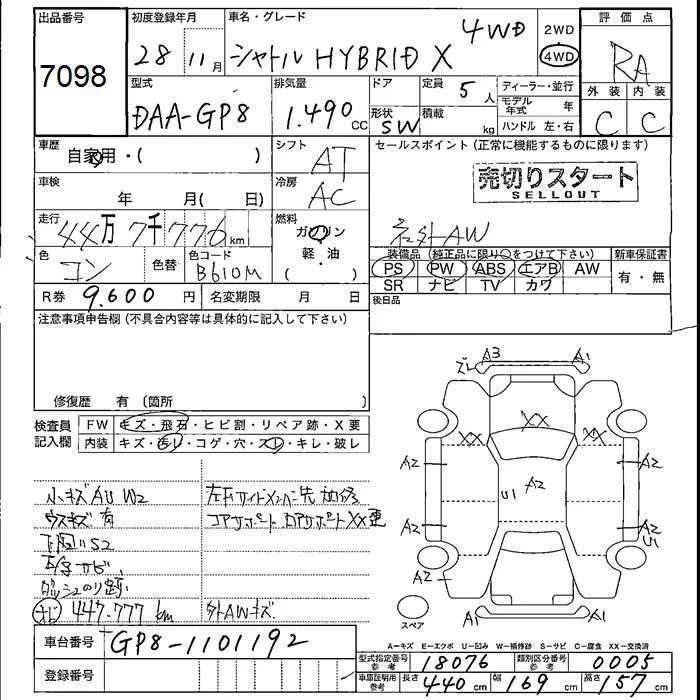 出品番号
7098
初度登録年月
28 11月
車名・グレード
シャトル HYBRID X 4WD
2WD
4WD
評価点
RA
外装 内装
C C
型式
DAA-GP8
排気量
1.490 CC
ドア
形状 SW
定員 5人
積載 kg
ディーラー・並行
モデル年式 年
ハンドル 左・右
車歴
自家用・( )
シフト
AT
セールスポイント (正常に機能するものに限ります)
売切りスタート
SELLOUT
車検
年 月( 日)
冷房
AC
走行
44万7千776km
燃料
ガソリン
軽・油
( )
社外AW
色
コン
色替
色コード
B610M
装備品 (純正品に限り○をつけて下さい)
新車保証書
PS PW ABS エアB AW
有・無
SR ナビ TV カワ
R券 9.600 円
名変期限 月 日
後日品
注意事項申告欄 (不具合内容等は具体的に記入して下さい)
修復歴 有 (箇所 )
検査員
記入欄
FW キズ・飛石・ヒビ割・リペア跡・X要
内装 キズ・汚レ・コゲ・穴・スレ・キレ・破レ
小キズAU W2
ウスキズ有
下廻りS2
サビ
ダッシュのり跡
447.777 km
左右サイドメンバー先 加修
コアサポート ロアサポートXX
外AWキズ
ズレ A3 A1
XX
XX XX
A2 A2
U1 A2
A2 A2
U1
A2
A1 A1
スペア
A=キズ E=エクボ U=凹み W=補修跡 S=サビ C=腐食 XX=交換済
車台番号 GP8-1101192
登録番号
型式指定番号 参考 18076
類別区分番号 参考 0005
車庫証明用 参考 長さ 440 cm 幅 169 cm 高さ 157 cm